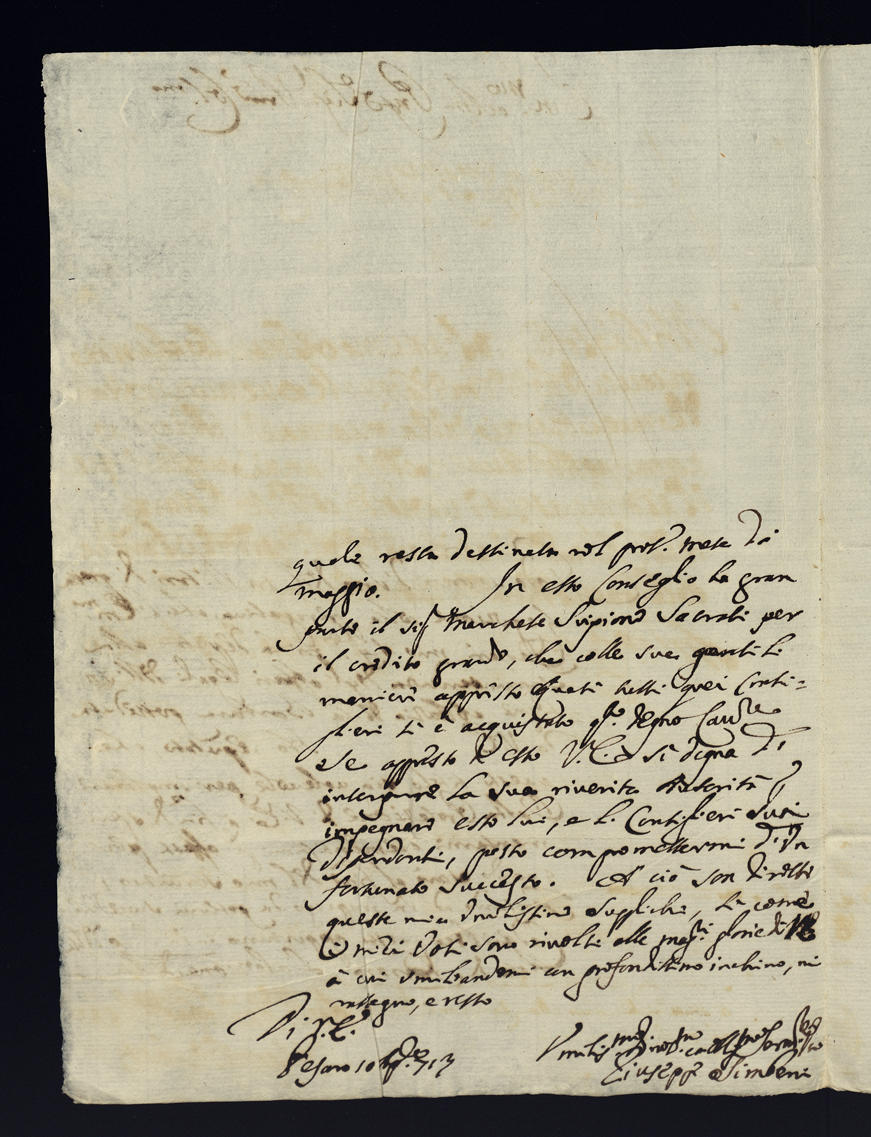 quale resta destinata nel pros.º mese di
Maggio. In esto Conseglio ha gran
parte il Sig.r Marchese Scipione Sacrati per
il credito grande, che colle sue gentili
maniere appresto questi tutti quei Consi=
glieri si è acquistato
Se appresto di esto V.E. si degna di
interporre la sua riverita Autorità
impegnare esto lui, e li Consiglieri suoi
dipendenti, posso compromettermi d'un
fortunato successo. A ciò son dirette
queste mie umilissime suppliche, si come
i miei voti sono rivolti alle mag.ri glorie di VE
à cui umiliandomi con profondissimo inchino, mi
rassegno, e resto
Di V.E.
Pesaro 10 1713
Umilis.mo Divot.mo
Giuseppe Simbeni